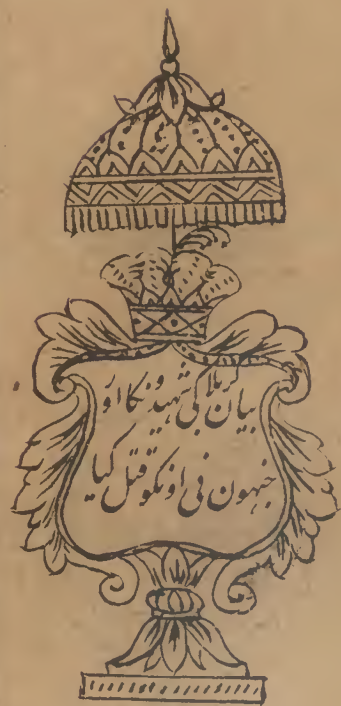 بیان کربلا کی شہیدونکا اور
جنہون نی اونکو قتل کیا